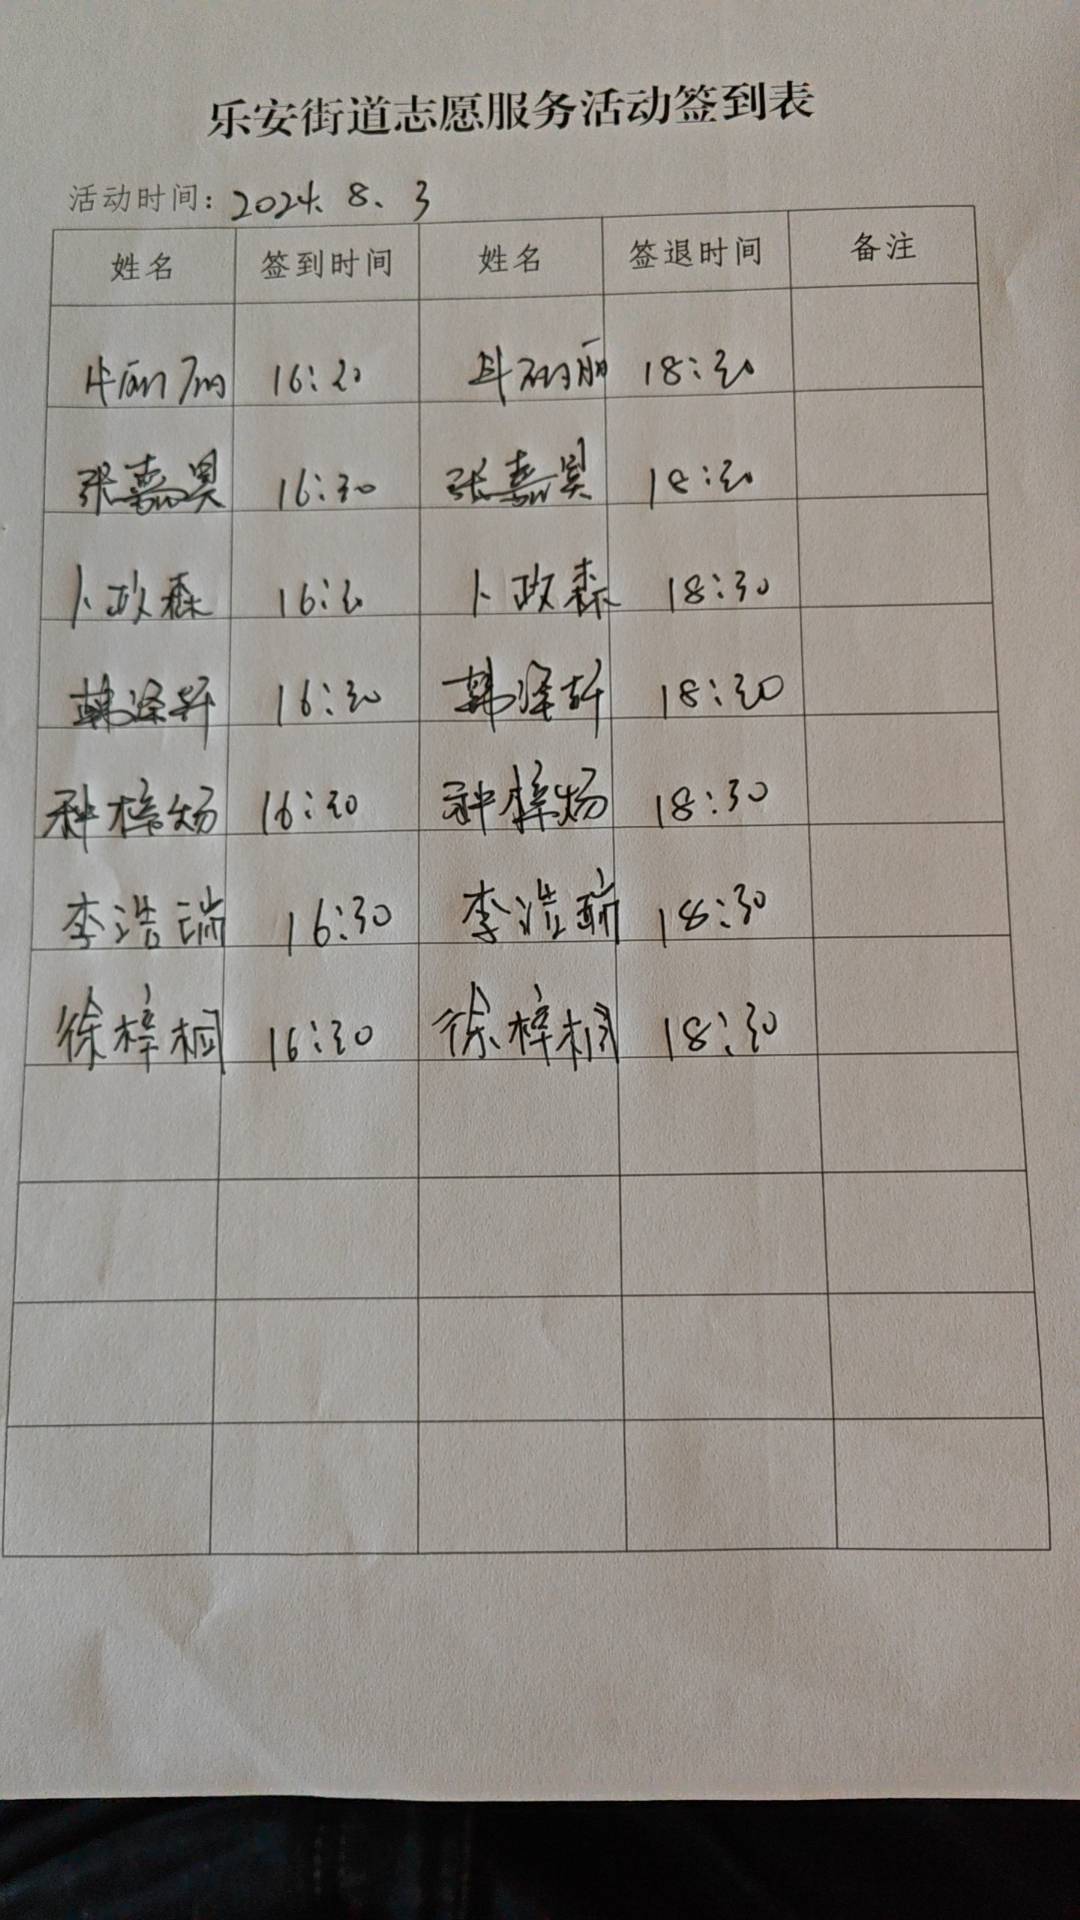 乐安街道志愿服务活动签到表
活动时间：2024.8.3
姓名 签到时间 姓名 签退时间 备注
16:20 18:30
张嘉昊 16:30 张嘉昊 18:30
卜政森 16:30 卜政森 18:30
韩泽轩 16:30 韩泽轩 18:30
种梓炀 16:30 种梓炀 18:30
李浩瑞 16:30 李浩瑞 18:30
徐梓桐 16:30 徐梓桐 18:30